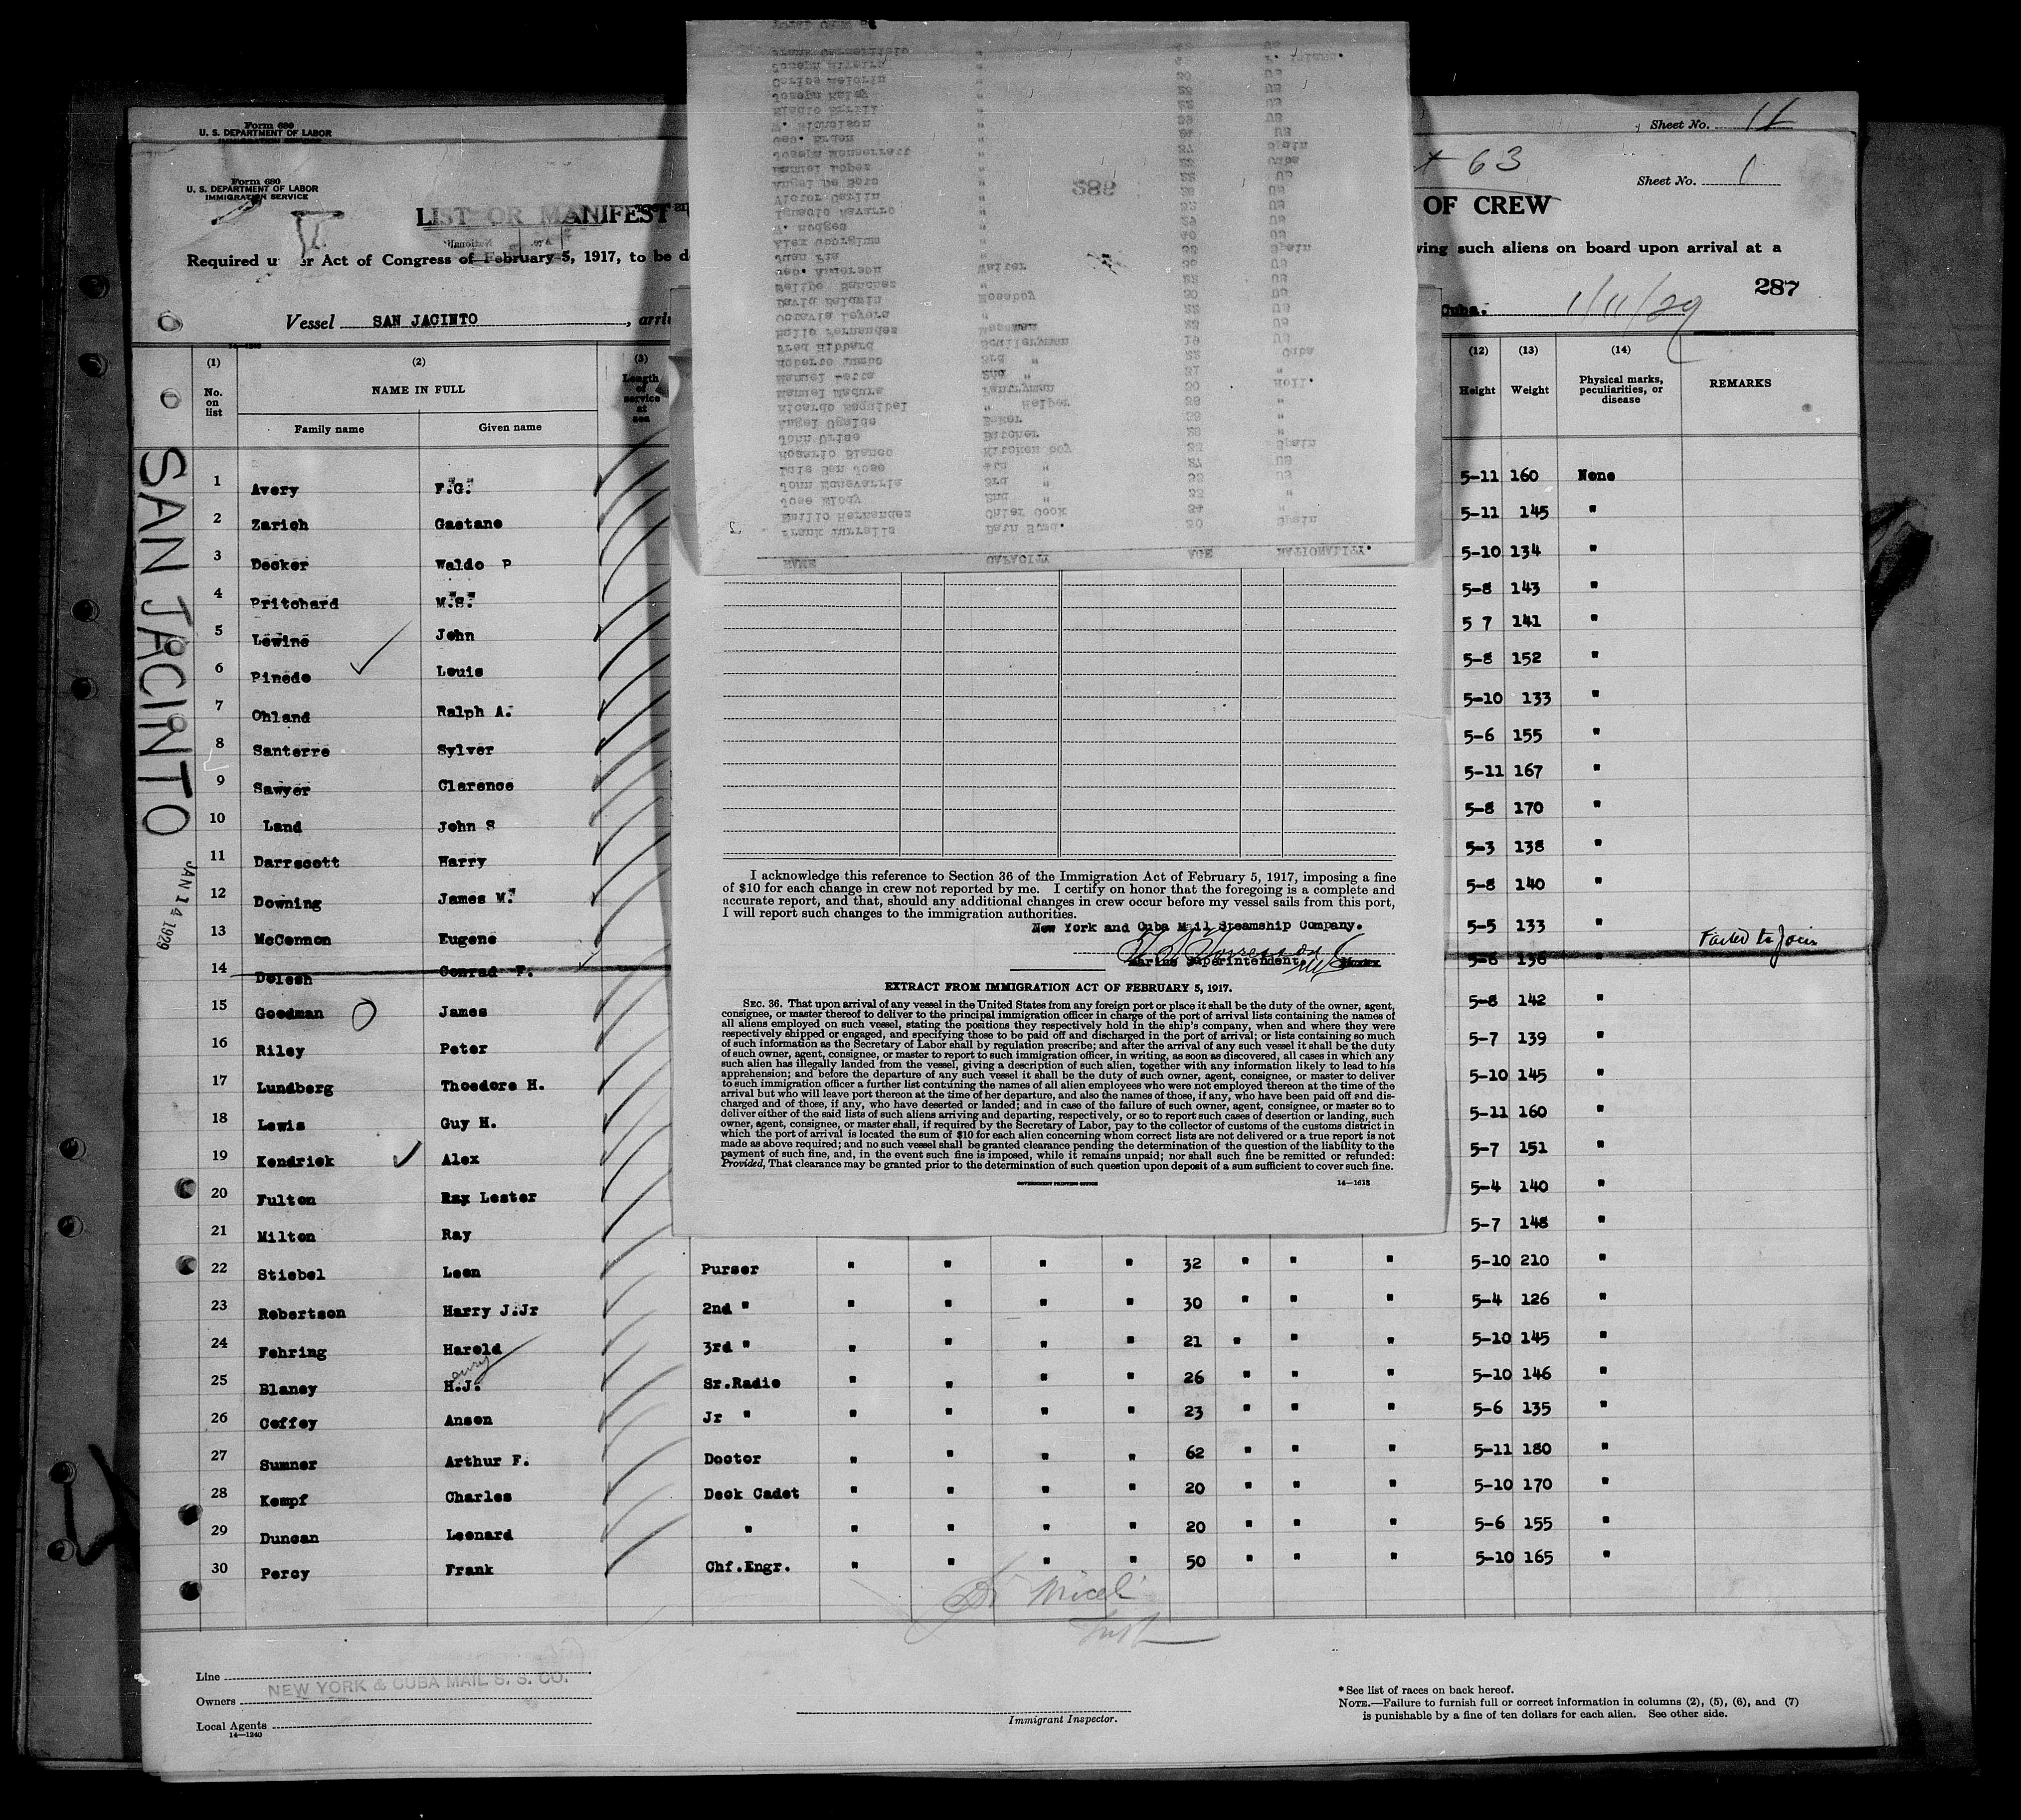 Form 680
U. S. DEPARTMENT OF LABOR
IMMIGRATION SERVICE
Sheet No. 11
Form 680
U. S. DEPARTMENT OF LABOR
IMMIGRATION SERVICE
63
Sheet No. 1
LIST OR MANIFEST
OF CREW
Required under Act of Congress of February 5, 1917, to be d
ving such aliens on board upon arrival at a
287
Vessel SAN JACINTO, arri
Cuba. 1/11/29
SAN JACINTO
JAN 14 1929
(1) (2) (3) (12) (13) (14)
No. on list NAME IN FULL Length of service at sea Height Weight Physical marks, peculiarities, or disease REMARKS
Family name Given name
1 Avery F.G. 5-11 160 None
2 Zarich Gaetano 5-11 145 "
3 Decker Waldo P 5-10 134 "
4 Pritchard M.S. 5-8 143 "
5 Lewine John 5 7 141 "
6 Pinedo Louis 5-8 152 "
7 Ohland Ralph A. 5-10 133 "
8 Santerre Sylver 5-6 155 "
9 Sawyer Clarence 5-11 167 "
10 Land John S 5-8 170 "
11 Darrscott Harry 5-3 138 "
12 Downing James M. 5-8 140 "
13 McCennon Eugene 5-5 133 "
14 Delesh Conrad F. 5-6 136 " Failed to Join
15 Goodman James 5-8 142 "
16 Riley Peter 5-7 139 "
17 Lundberg Theodore H. 5-10 145 "
18 Lewis Guy H. 5-11 160 "
19 Kendrick Alex 5-7 151 "
20 Fulton Ray Lester 5-4 140 "
21 Milton Ray 5-7 148 "
22 Stiebel Leon Purser " " " " 32 " " " 5-10 210 "
23 Robertson Harry J.Jr 2nd " " " " " 30 " " " 5-4 126 "
24 Fehring Harold 3rd " " " " " 21 " " " 5-10 145 "
25 Blaney H.J. Sr.Radio " " " " 26 " " " 5-10 146 "
26 Coffey Anson Jr " " " " " 23 " " " 5-6 135 "
27 Sumner Arthur F. Doctor " " " " 62 " " " 5-11 180 "
28 Kempf Charles Deck Cadet " " " " 20 " " " 5-10 170 "
29 Duncan Leonard " " " " " 20 " " " 5-6 155 "
30 Percy Frank Chf.Engr. " " " " 50 " " " 5-10 165 "
NAME CAPACITY AGE NATIONALITY.
Frank Jurralis Bath Stwd. 30 Spain
Emilio Hernandez Chief Cook 34 "
Jose Miody 2nd " 33 "
John Echevarria 3rd " 33 US
Luis San Jose 4th " 27 US
Rosario Blanco Kitchen boy 33 Spain
John Uriae Butcher 28 "
Angel Ugalde Baker 39 "
Ricardo Maquibel " Helper 38 "
Manuel Madura Pantryman 30 Holl.
Manuel Lotta 2nd " 31 "
Roberto Lumbo 3rd " 22 Cuba
Fred Hibbard Sculleryman 19 US
Ballo Fernandez Messman 23 US
Octavia Leyera " 22 US
David Baldwin Messboy 30 US
Felipe Sanchez " 22 US
Geo. Anderson Waiter 36 US
Juan Pla " 33 Spain
Alex Georgium " 40 US
W. Hodges " 29 US
Ignacio Navarro " 32 US
Victor Carlin " 28 US
Angel De Soto " 22 US
Manuel Lopez " 23 Cuba
Joseph Monserratt " 37 Spain
Geo. Erden " 34 US
W. Nicholson " 39 US
Joseph Haley " 25 US
Carlos Melorin " 30 US
289
I acknowledge this reference to Section 36 of the Immigration Act of February 5, 1917, imposing a fine
of $10 for each change in crew not reported by me. I certify on honor that the foregoing is a complete and
accurate report, and that, should any additional changes in crew occur before my vessel sails from this port,
I will report such changes to the immigration authorities.
New York and Cuba Mail Steamship Company.
Marine Superintendent.
EXTRACT FROM IMMIGRATION ACT OF FEBRUARY 5, 1917.
SEC. 36. That upon arrival of any vessel in the United States from any foreign port or place it shall be the duty of the owner, agent,
consignee, or master thereof to deliver to the principal immigration officer in charge of the port of arrival lists containing the names of
all aliens employed on such vessel, stating the positions they respectively hold in the ship's company, when and where they were
respectively shipped or engaged, and specifying those to be paid off and discharged in the port of arrival; or lists containing so much
of such information as the Secretary of Labor shall by regulation prescribe; and after the arrival of any such vessel it shall be the duty
of such owner, agent, consignee, or master to report to such immigration officer, in writing, as soon as discovered, all cases in which any
such alien has illegally landed from the vessel, giving a description of such alien, together with any information likely to lead to his
apprehension; and before the departure of any such vessel it shall be the duty of such owner, agent, consignee, or master to deliver
to such immigration officer a further list containing the names of all alien employees who were not employed thereon at the time of the
arrival but who will leave port thereon at the time of her departure, and also the names of those, if any, who have been paid off and dis-
charged and of those, if any, who have deserted or landed; and in case of the failure of such owner, agent, consignee, or master so to
deliver either of the said lists of such aliens arriving and departing, respectively, or so to report such cases of desertion or landing, such
owner, agent, consignee, or master shall, if required by the Secretary of Labor, pay to the collector of customs of the customs district in
which the port of arrival is located the sum of $10 for each alien concerning whom correct lists are not delivered or a true report is not
made as above required; and no such vessel shall be granted clearance pending the determination of the question of the liability to the
payment of such fine, and, in the event such fine is imposed, while it remains unpaid; nor shall such fine be remitted or refunded:
Provided, That clearance may be granted prior to the determination of such question upon deposit of a sum sufficient to cover such fine.
GOVERNMENT PRINTING OFFICE 14—1618
Line
Owners NEW YORK & CUBA MAIL S. S. CO.
Local Agents
14—1240
Immigrant Inspector.
* See list of races on back hereof.
NOTE.—Failure to furnish full or correct information in columns (2), (5), (6), and (7)
is punishable by a fine of ten dollars for each alien. See other side.